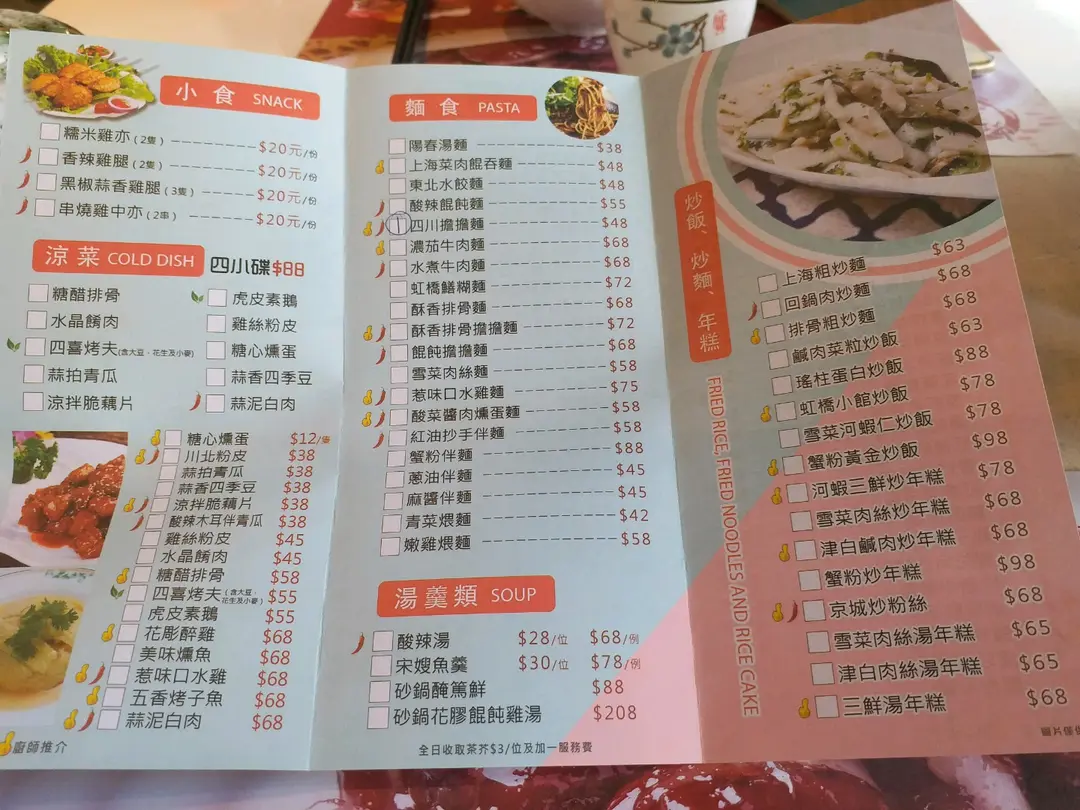 小食 SNACK
糯米雞亦(2隻) $20元/份
香辣雞腿(2隻) $20元/份
黑椒蒜香雞腿(3隻) $20元/份
串燒雞中亦(2串) $20元/份
涼菜 COLD DISH 四小碟$88
糖醋排骨 虎皮素鵝
水晶餚肉 雞絲粉皮
四喜烤夫(含大豆、花生及小麥) 糖心燻蛋
蒜拍青瓜 蒜香四季豆
涼拌脆藕片 蒜泥白肉
糖心燻蛋 $12/隻
川北粉皮 $38
蒜拍青瓜 $38
蒜香四季豆 $38
涼拌脆藕片 $38
酸辣木耳伴青瓜 $38
雞絲粉皮 $45
水晶餚肉 $45
糖醋排骨 $58
四喜烤夫(含大豆、花生及小麥) $55
虎皮素鵝 $55
花彫醉雞 $68
美味燻魚 $68
惹味口水雞 $68
五香烤子魚 $68
蒜泥白肉 $68
廚師推介
麵食 PASTA
陽春湯麵 $38
上海菜肉餛吞麵 $48
東北水餃麵 $48
酸辣餛飩麵 $55
四川擔擔麵 $48
濃茄牛肉麵 $68
水煮牛肉麵 $68
虹橋鱔糊麵 $72
酥香排骨麵 $68
酥香排骨擔擔麵 $72
餛飩擔擔麵 $68
雪菜肉絲麵 $58
惹味口水雞麵 $75
酸菜醬肉燻蛋麵 $58
紅油抄手伴麵 $58
蟹粉伴麵 $88
蔥油伴麵 $45
麻醬伴麵 $45
青菜煨麵 $42
嫩雞煨麵 $58
湯羹類 SOUP
酸辣湯 $28/位 $68/例
宋嫂魚羹 $30/位 $78/例
砂鍋醃篤鮮 $88
砂鍋花膠餛飩雞湯 $208
全日收取茶芥$3/位及加一服務費
炒飯、炒麵、年糕
FRIED RICE, FRIED NOODLES AND RICE CAKE
上海粗炒麵 $63
回鍋肉炒麵 $68
排骨粗炒麵 $68
鹹肉菜粒炒飯 $63
瑤柱蛋白炒飯 $88
虹橋小館炒飯 $78
雪菜河蝦仁炒飯 $78
蟹粉黃金炒飯 $98
河蝦三鮮炒年糕 $78
雪菜肉絲炒年糕 $68
津白鹹肉炒年糕 $68
蟹粉炒年糕 $98
京城炒粉絲 $68
雪菜肉絲湯年糕 $65
津白肉絲湯年糕 $65
三鮮湯年糕 $68